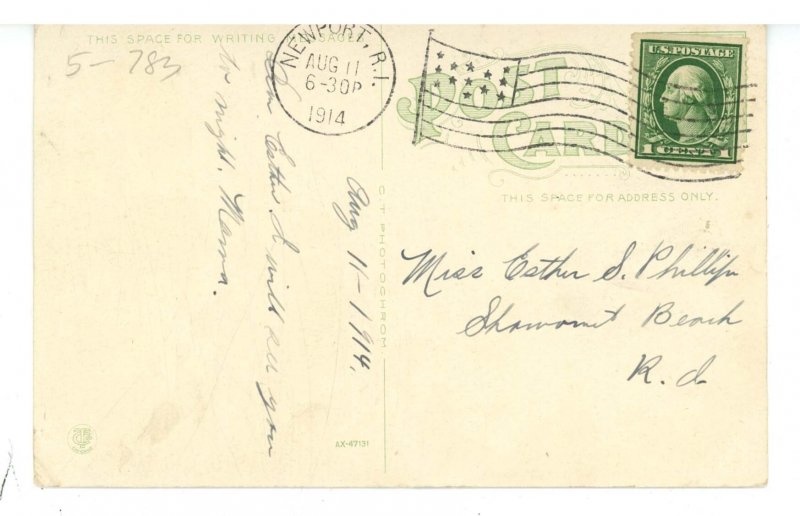 THIS SPACE FOR WRITING MESSAGES
5-783
NEWPORT, R.I.
AUG 11
6-30P
1914
POST CARD
U.S. POSTAGE
1 CENT 1
THIS SPACE FOR ADDRESS ONLY.
Aug 11-1914.
Dear Esther I will see you
to night. Mama.
C.T. PHOTOCHROM
Miss Esther S. Phillips
Shawomet Beach
R. I.
AX-47131